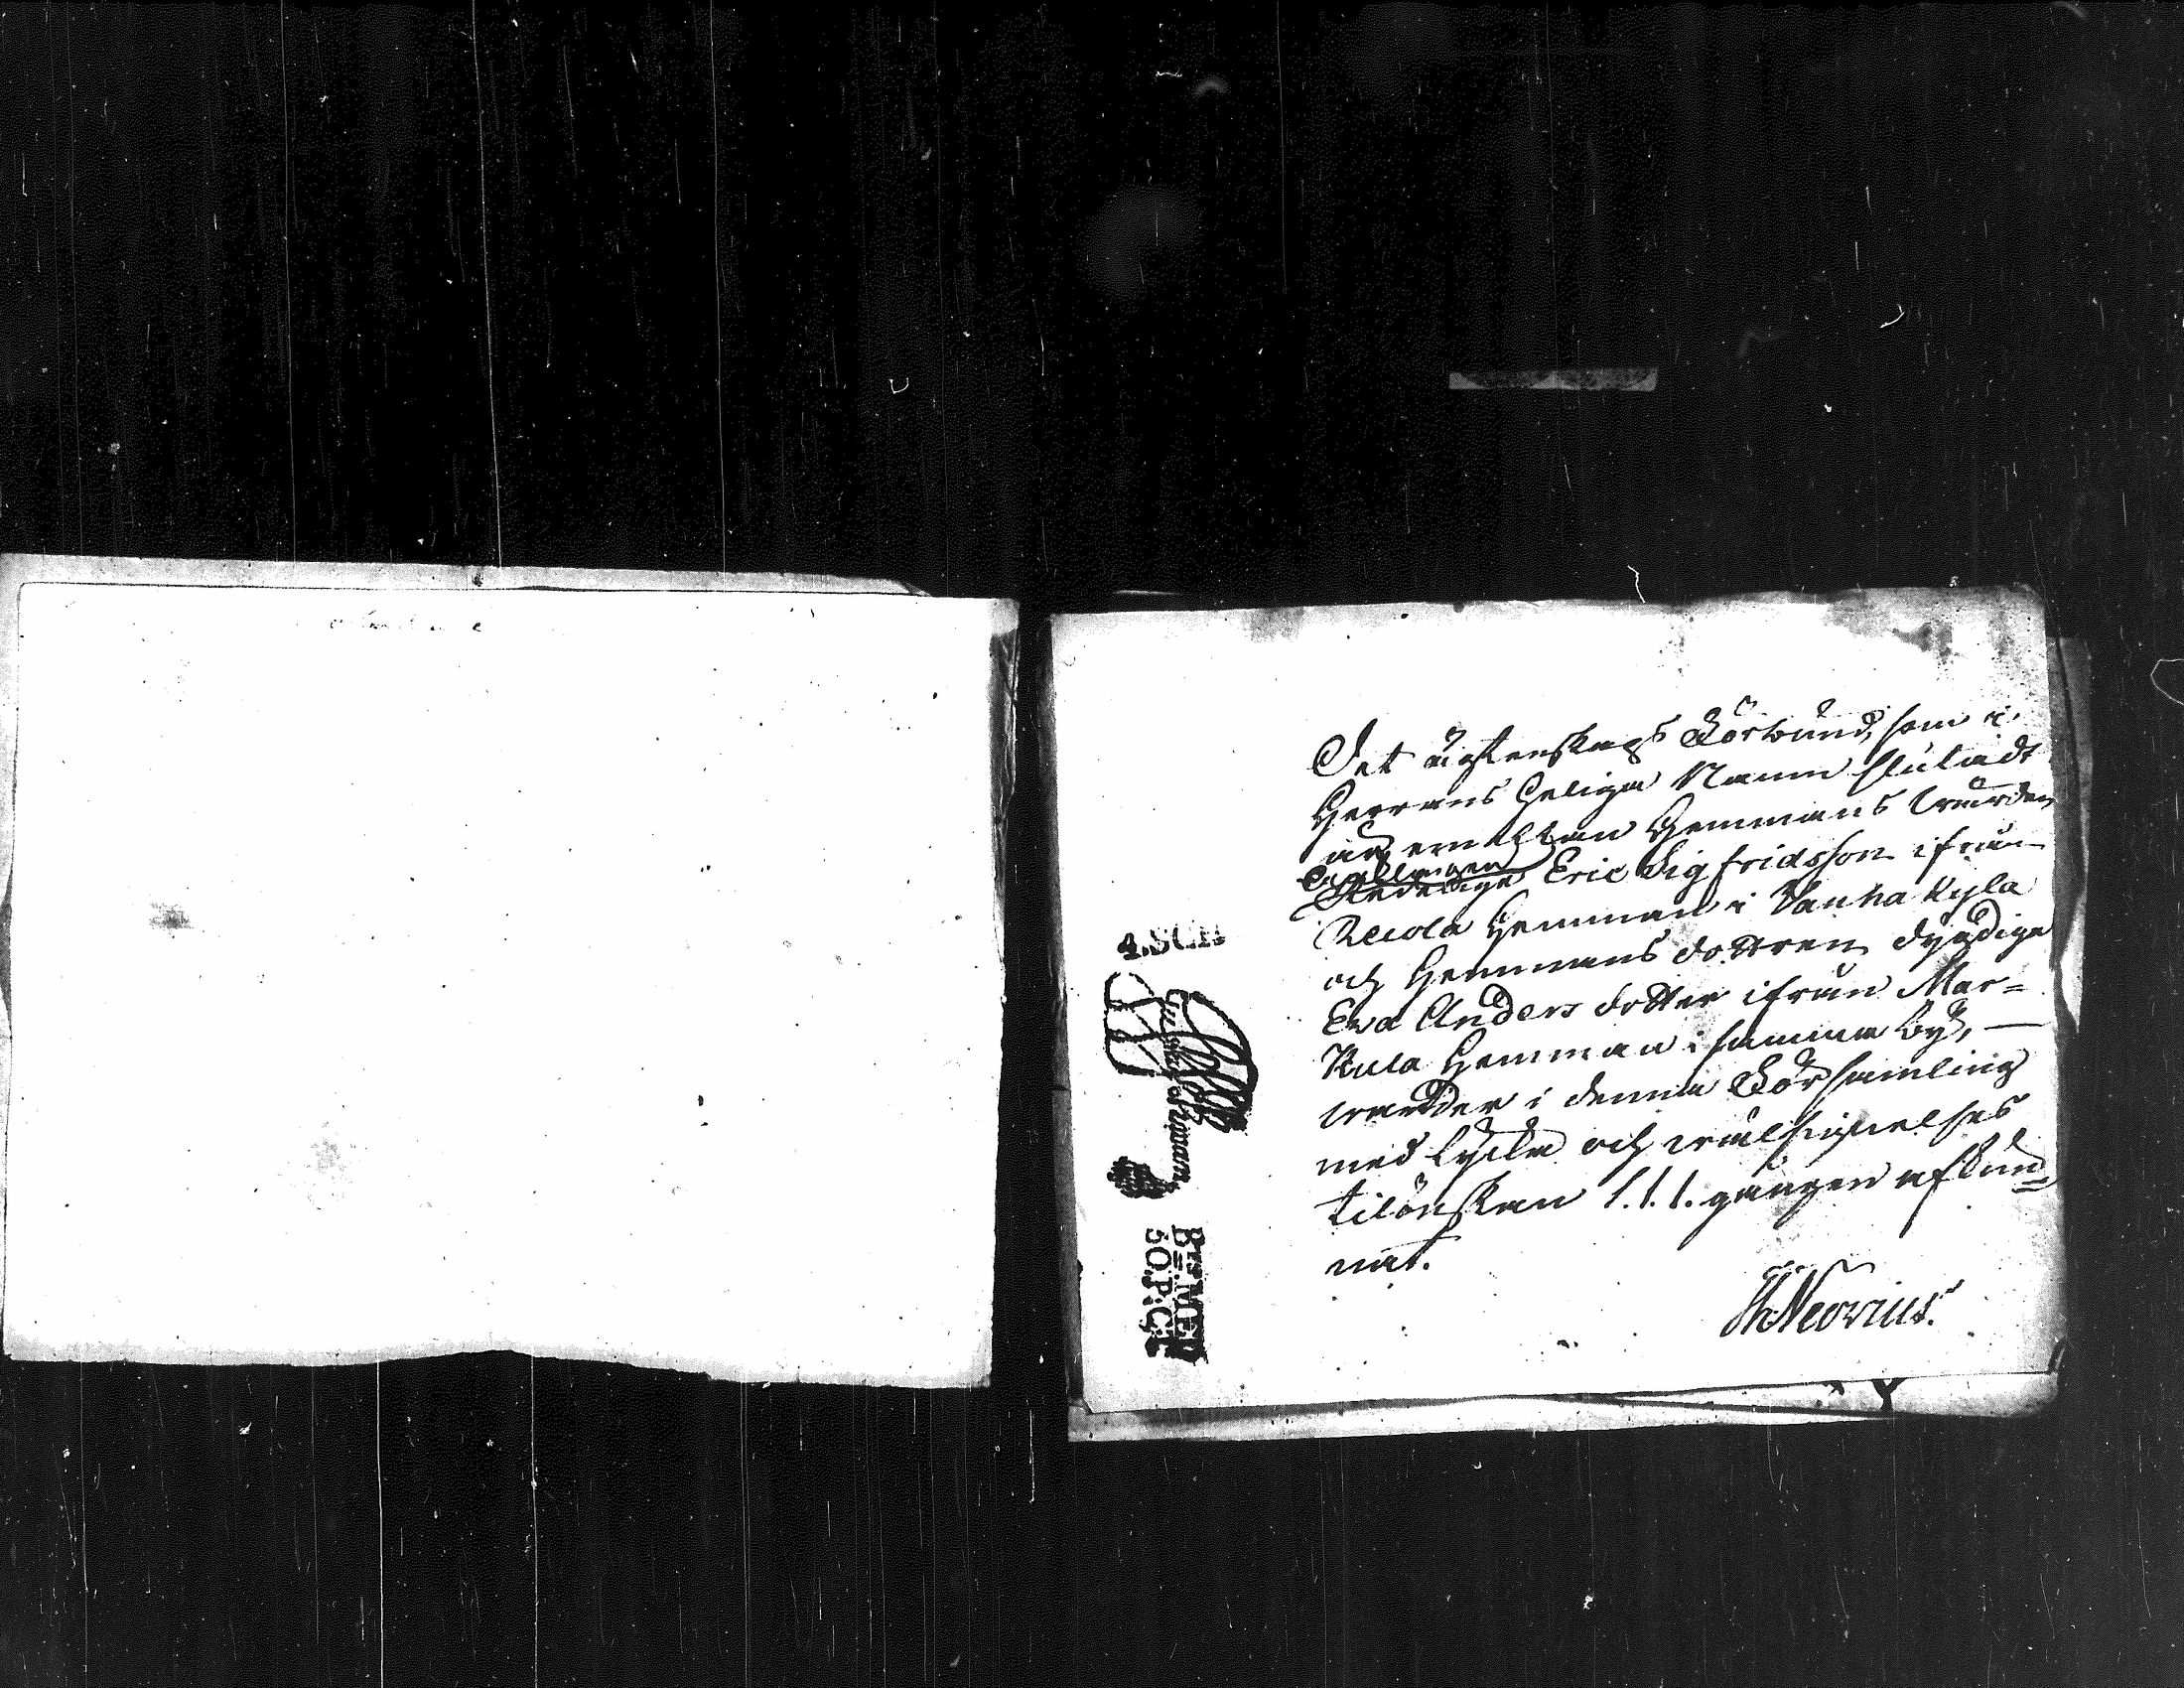 Det ägtenskaps Förbund, som i
Herrans Heliga Namn slutadt
är emellan Hemmans wärden
Enklingen
Eric Sigfridsson ifrån
Recola Hemman i Vanhakyla
och Hemmans dottren dygdiga
Eva Anders dotter ifrån Mar=
kula Hemman i samma by, —
warder i denna Församling
med lycka och wälsignelses
tilönskan 1. 1. 1. gången afkun=
nat.
Neovius.
4. SCH
Bco MED
5O.P:CT